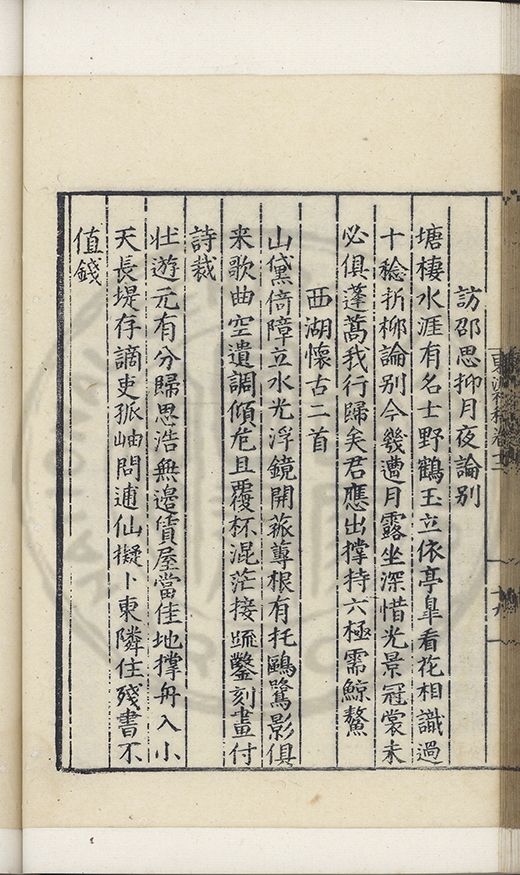 訪邵思抑月夜論别
塘棲水涯有名士野鶴玉立依亭臯看花相識過
十稔折柳論别今幾遭月露坐深惜光景冠裳未
必俱蓬蒿我行歸矣君應出撑持六極需鯨鰲
西湖懷古二首
山黛倚障立水光浮鏡開菰蓴根有托鷗鷺影俱
来歌曲空遺調傾危且覆杯混茫接疏鑿刻畫付
詩裁
壮遊元有分歸思浩無邉賃屋當佳地撑舟入小
天長堤存謫吏孤岫問逋仙擬卜東隣住殘書不
值錢